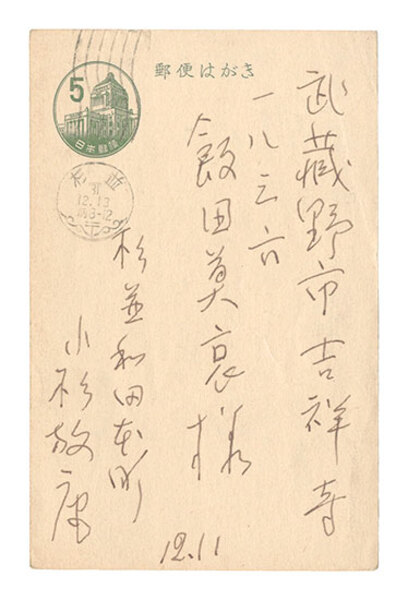 郵便はがき
5
日本郵便
杉並
31
12.13
武蔵野市吉祥寺
一八三六
飯田莫哀様
杉並和田本町
小杉放庵
12.11